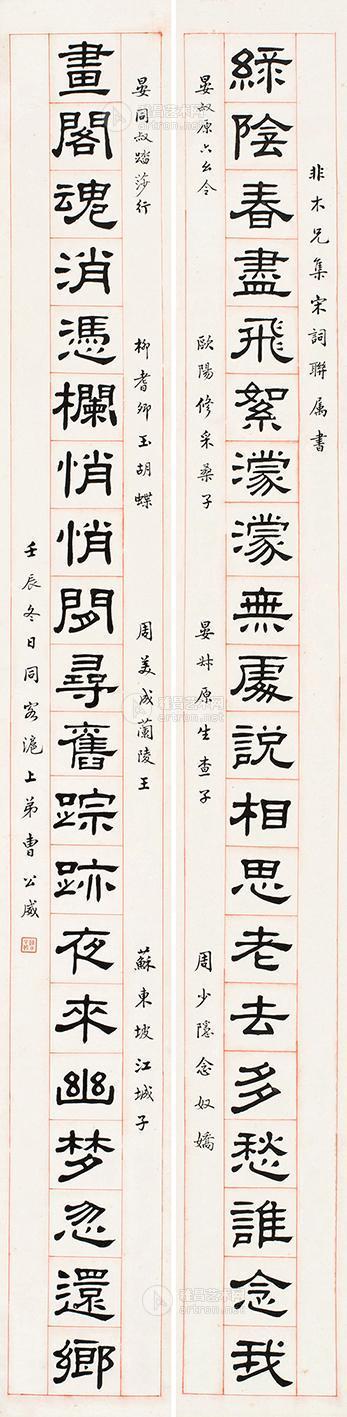 非木兄集宋詞聯属書
綠陰春盡飛絮濛濛無處說相思老去多愁誰念我
晏叔原六幺令
歐陽修采桑子
晏叔原生查子
周少隱念奴嬌
晏同叔踏莎行
柳耆卿玉胡蝶
周美成蘭陵王
蘇東坡江城子
畫閣魂消憑欄悄悄閒尋舊踪跡夜來幽梦忽還鄉
壬辰冬日同客滬上弟曹公威
雅昌艺术网
artron.net